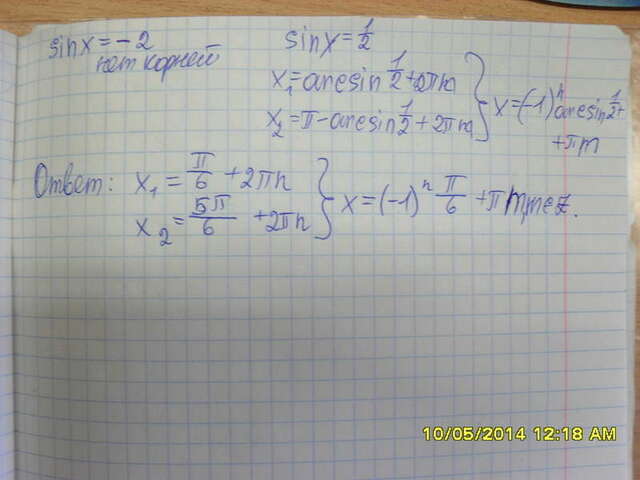 sinx = -2
нет корней
sinx = 1/2
x₁ = arcsin 1/2 + 2πn
x₂ = π - arcsin 1/2 + 2πn } x = (-1)ⁿ arcsin 1/2 +
+ πn
Ответ: x₁ = π/6 + 2πn
x₂ = 5π/6 + 2πn } x = (-1)ⁿ π/6 + πn, n∈Z.
10/05/2014 12:18 AM